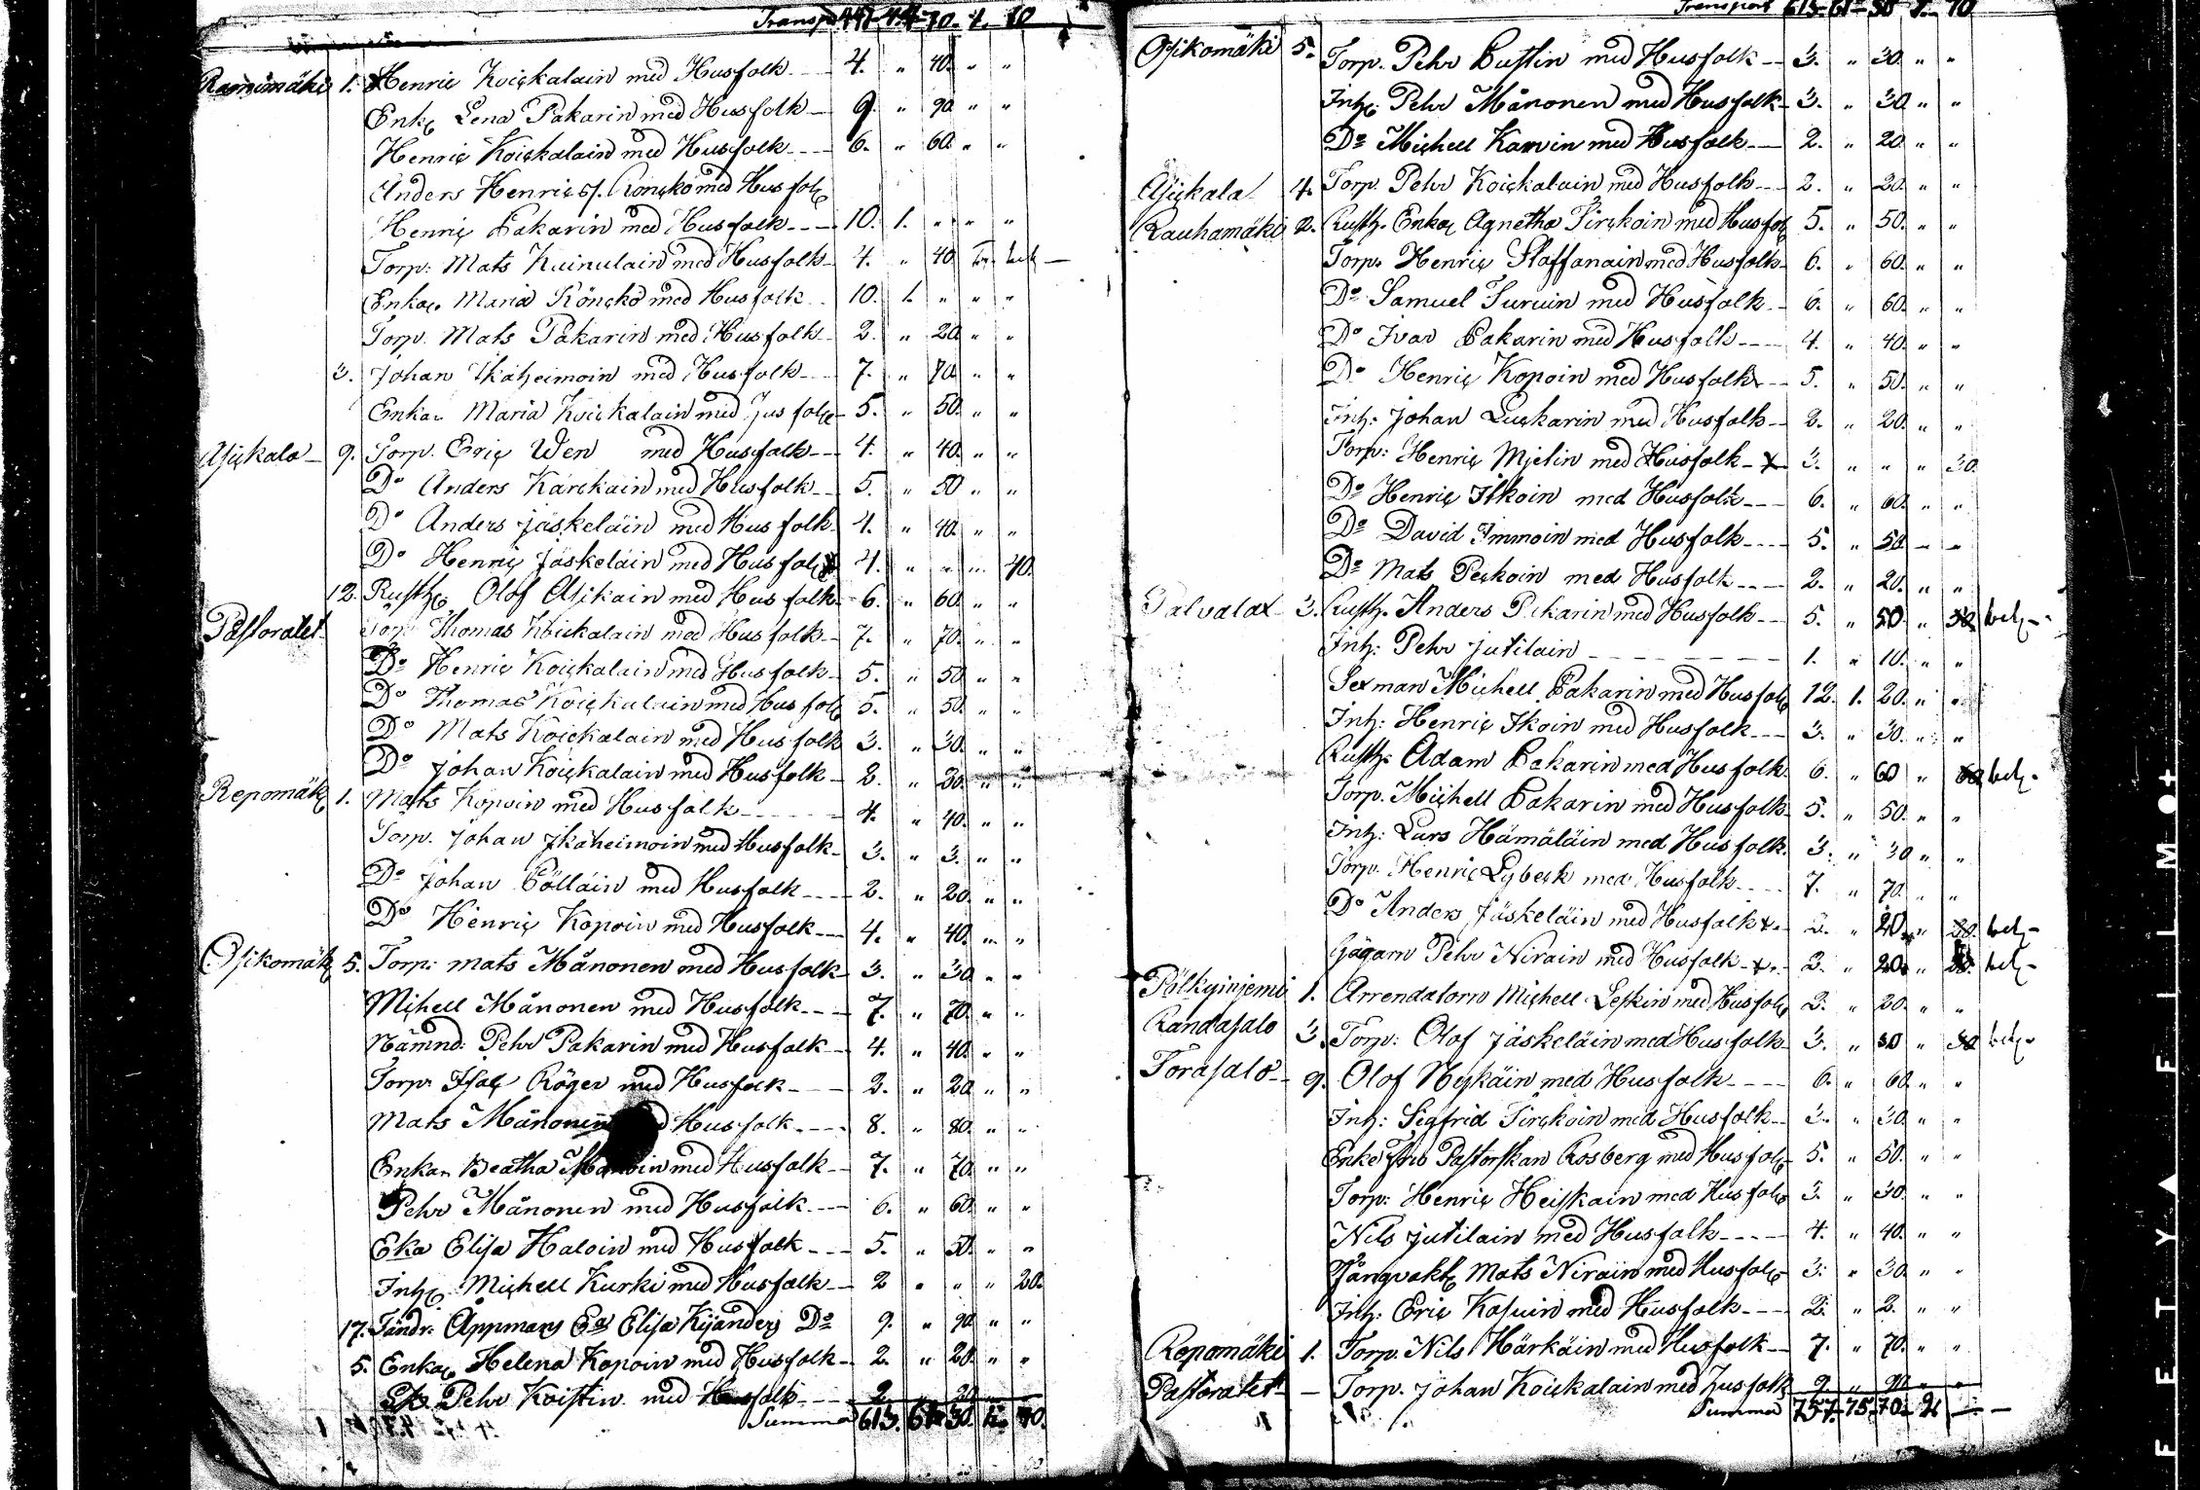 Transp. 447. 44. 70. 1. 10
Ramimäki 1. Henric Koickalain med Husfolk 4. " 40. " "
Enk. Lena Pakarin med Husfolk 9. " 90. " "
Henric Koickalain med Husfolk 6. " 60. " "
Anders Henrics. Könckö med Husfolk
Henric Pakarin med Husfolk 10. 1. " " "
Torp: Mats Kuinulain med Husfolk 4. " 40.
Enka. Maria Könckö med Husfolk 10. 1. " " "
Torp. Mats Pakarin med Husfolk 2. " 20. " "
3. Johan Ikäheimoin med Husfolk 7. " 70. " "
Enka. Maria Koickalain med Husfolk 5. " 50. " "
Asickala 9. Torp. Eric Wen med Husfolk 4. " 40. " "
Do Anders Karckain med Husfolk 5. " 50 " "
Do Anders Jäskeläin med Husfolk 4. " 40. " "
Do Henric Jäskeläin med Husfolk 4. " " " 40.
12. Rusth. Olof Asikain med Husfolk 6. " 60. " "
Pastoratet Torp. Thomas Koickalain med Husfolk 7. " 70. " "
Do Henric Koickalain med Husfolk 5. " 50 " "
Do Thomas Koickalain med Husfolk 5. " 50. " "
Do Mats Koickalain med Husfolk 3. " 30. " "
Do Johan Koickalain med Husfolk " "
Repomäki 1. Mats Kopoin med Husfolk 4. " 40. " "
Torp. Johan Ikäheimoin med Husfolk 3. " 3. " "
Do Johan Pölläin med Husfolk 2. " 20. " "
Do Henric Kopoin med Husfolk 4. " 40. " "
Osikomäki 5. Torp: Mats Månonen med Husfolk 3. " 30 " "
Michell Månonen med Husfolk 7. " 70. " "
Nämnd: Pehr Pakarin med Husfolk 4. " 40. " "
Torp. Isac Röger med Husfolk 2. " 20. " "
Mats Månonen Husfolk 8. " 80. " "
Enka. Beatha med Husfolk 7. " 70. " "
Pehr Månonen med Husfolk 6. " 60. " "
Eka Elisa Haloin med Husfolk 5. " 50. " "
Inh. Michell Kurki med Husfolk 2 " " " 20.
17. Elisa Kijanders Do 9. " 90. " "
5. Enka Helena Kopoin med Husfolk 2. " 20. " "
Pehr Koistin med Husfolk 2. " 20
Summa 613. 61. 30. 1. 70.
Transport 613. 61. 30 1. 70
Osikomäki 5. Torp. Pehr Pustin med Husfolk 3. " 30. " "
Inh: Pehr Månonen med Husfolk 3. " 30. " "
Do Michell Karvin med Husfolk 2. " 20. " "
Asickala 4. Torp. Pehr Koickalain med Husfolk 2. " 20. " "
Rauhamäki 2. Rusth. Enka Agnetha Tirckoin med Husfolk 5. " 50. " "
Torp. Henric Staffanain med Husfolk 6. " 60. " "
Do Samuel Turuin med Husfolk 6. " 60. " "
Do Ivar Pakarin med Husfolk 4. " 40. " "
Do Henric Kopoin med Husfolk 5. " 50. " "
Inh: Johan Luckarin med Husfolk 2. " 20. " "
Torp: Henric Mielin med Husfolk 3. " " " 30.
Do Henric Itkoin med Husfolk 6. " 60. " "
Do David Immoin med Husfolk 5. " 50 " "
Do Mats Peckoin med Husfolk 2. " 20. " "
3. Rusth. Anders Pakarin med Husfolk 5. " 50 " 50 bet.
Inh: Pehr Jutilain 1. " 10. " "
Sexman Michell Pakarin med Husfolk 12. 1. 20. " "
Inh: Henric Ikoin med Husfolk 3. " 30. " "
Rusth. Adam Pakarin med Husfolk 6. " 60 " 60 bet.
Torp. Michell Pakarin med Husfolk 5. " 50. " "
Inh: Lars Hämäläin med Husfolk 3. " 30 " "
Torp. Henric Lybeck med Husfolk 7. " 70. " "
Do Anders Jäskeläin med Husfolk 2. " 20. " 20. bet
Pehr Nirain med Husfolk 2. " 20. " 20. bet
1. Arrendatorn Michell Leskin med Husfolk 2. " 20. " "
Randasalo 3. Torp: Olof Jäskeläin med Husfolk 3. " 30 " 30 bet
Torasalo 9. Olof Nyckäin med Husfolk 6. " 60. " "
Inh: Segfrid Tirckoin med Husfolk 3. " 30. " "
Enke Fru Pastorskan Rosberg med Husfolk 5. " 50. " "
Torp: Henric Heiskain med Husfolk 3. " 30. " "
Nils Jutilain med Husfolk 4. " 40. " "
Fångvakt. Mats Nirain med Husfolk 3. " 30. " "
Inh: Eric Kosuin med Husfolk 2. " 2. " "
Repomäki 1. Torp. Nils Härkäin med Husfolk 7. " 70. " "
Pastoratet Torp. Johan Koickalain med Husfolk 9. " 90. " "
Summa 757. 75. 70. 2
FILM